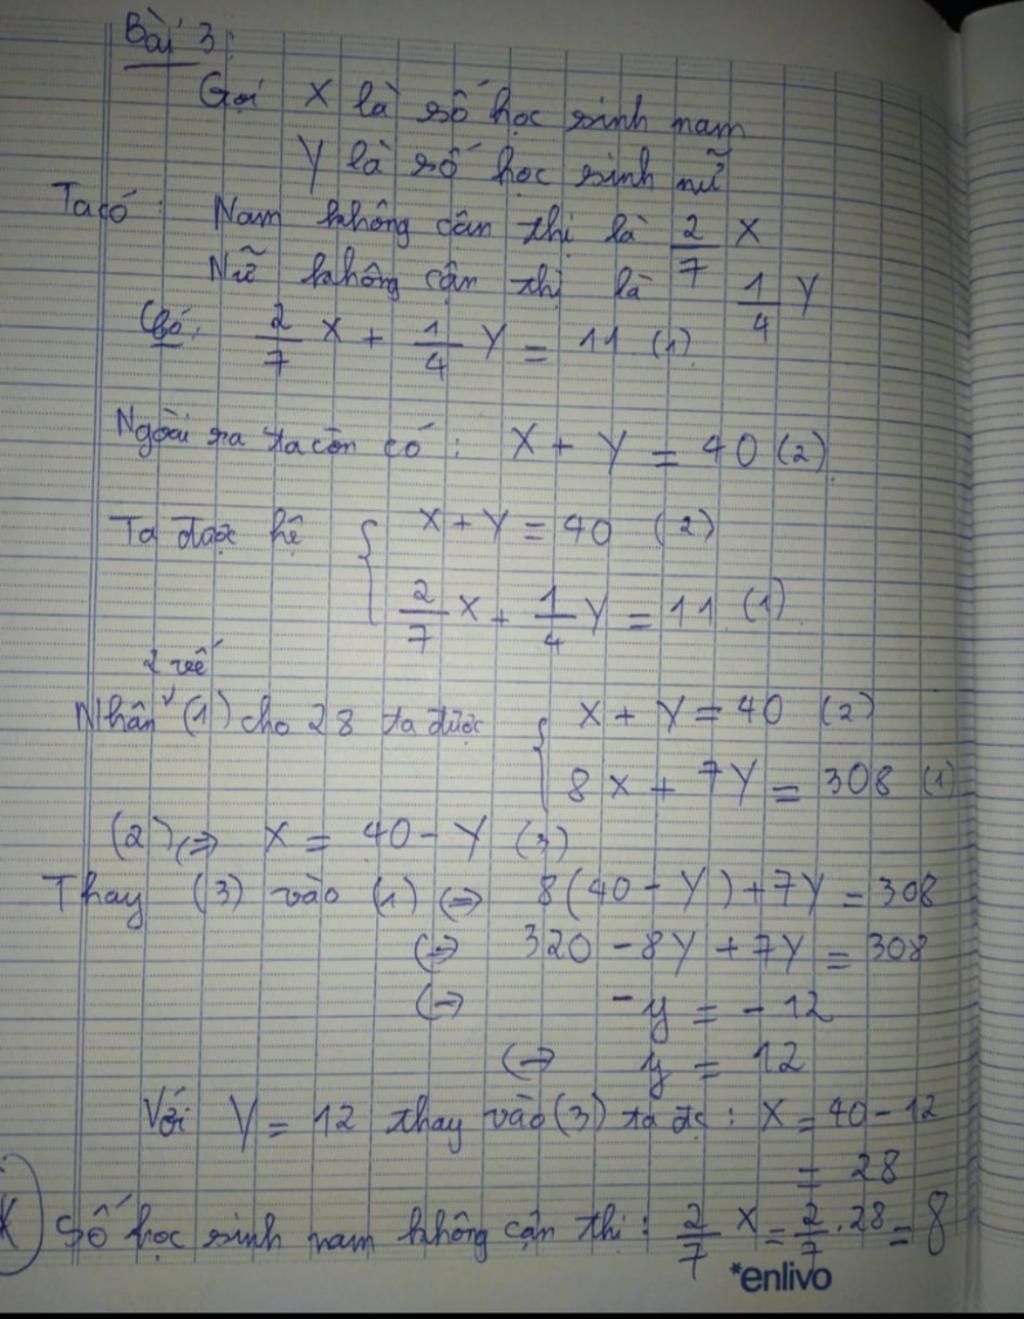 Bài 3:
Gọi X là số học sinh nam
Y là số học sinh nữ
Ta có: Nam không cận thị là 2/7 X
Nữ không cận thị là 1/4 Y
Có: 2/7 X + 1/4 Y = 11 (1)
Ngoài ra ta còn có: X + Y = 40 (2)
Ta được hệ { X + Y = 40 (2)
2/7 X + 1/4 Y = 11 (1)
2 vế
Nhân (1) cho 28 ta được { X + Y = 40 (2)
8X + 7Y = 308 (1)
(2) <=> X = 40 - Y (3)
Thay (3) vào (1) <=> 8(40 - Y) + 7Y = 308
<=> 320 - 8Y + 7Y = 308
<=> -y = -12
<=> y = 12
Với Y = 12 thay vào (3) ta đc: X = 40 - 12
= 28
Số học sinh nam không cận thị: 2/7 X = 2/7 . 28 = 8
*enlivo